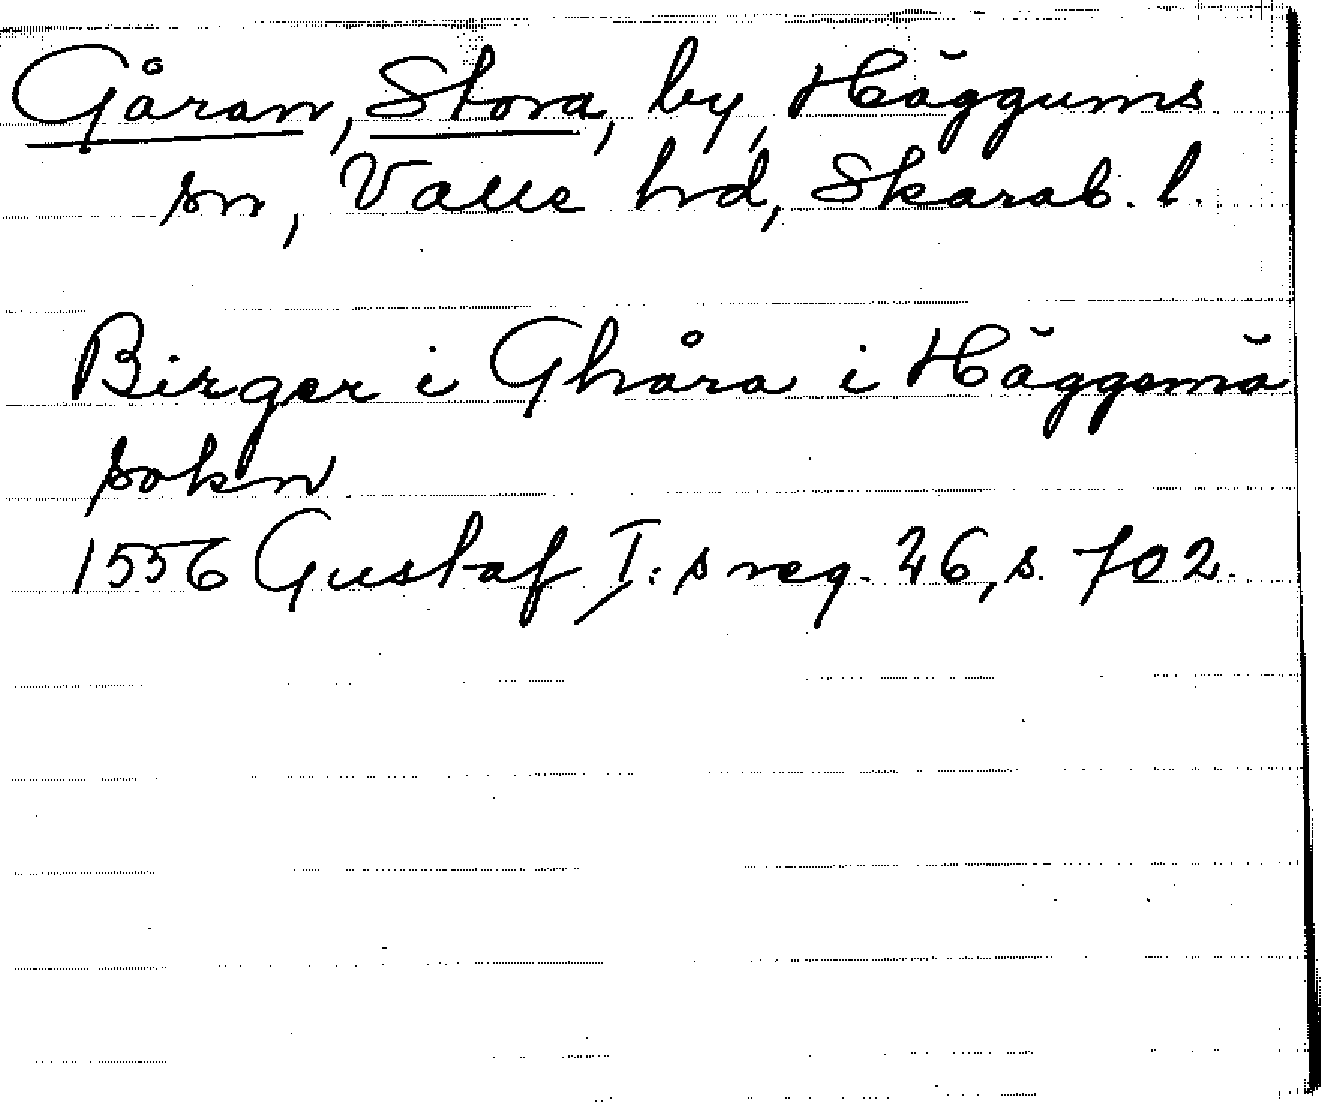 Gåran, Stora, by, Häggums
sn, Valle hd, Skarab. l.
Birger i Ghåra i Häggemä
sokn
1556 Gustaf I:s reg. 26, s. 702.